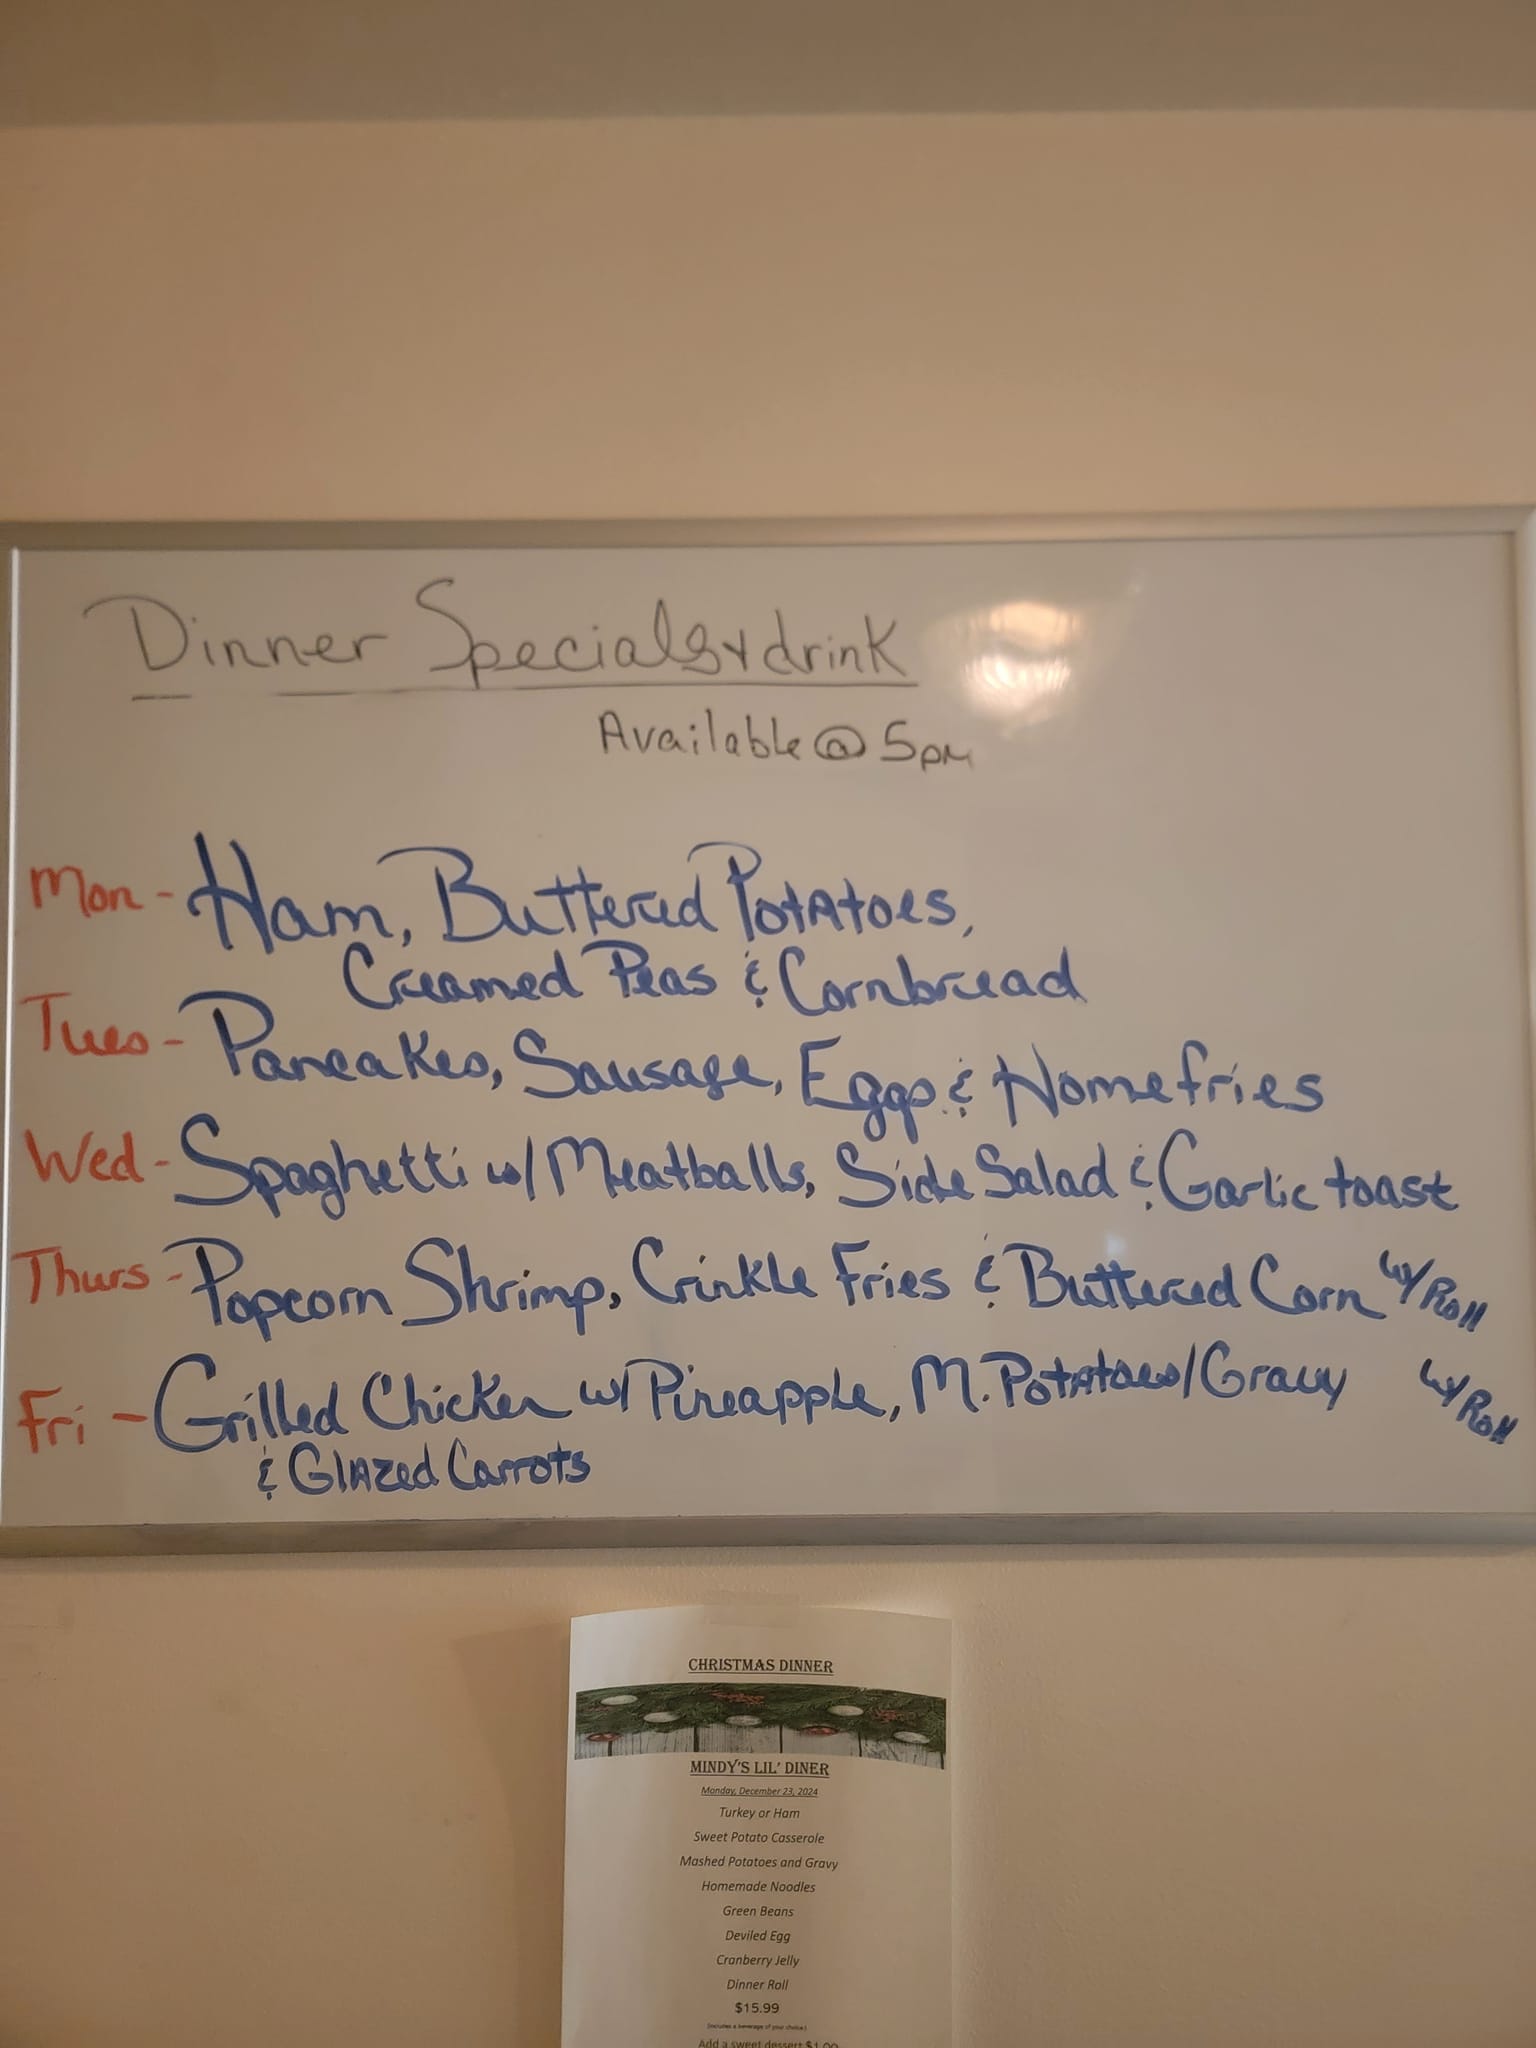 Dinner Specials & drink
Available @ 5pm
Mon - Ham, Buttered Potatoes,
Creamed Peas & Cornbread
Tues - Pancakes, Sausage, Eggs & Homefries
Wed - Spaghetti w/ Meatballs, Side Salad & Garlic toast
Thurs - Popcorn Shrimp, Crinkle Fries & Buttered Corn w/ Roll
Fri - Grilled Chicken w/ Pineapple, M. Potatoes/Gravy w/ Roll
& Glazed Carrots
CHRISTMAS DINNER
MINDY'S LIL' DINER
Monday, December 23, 2024
Turkey or Ham
Sweet Potato Casserole
Mashed Potatoes and Gravy
Homemade Noodles
Green Beans
Deviled Egg
Cranberry Jelly
Dinner Roll
$15.99
(includes a beverage of your choice)
Add a sweet dessert $1.00